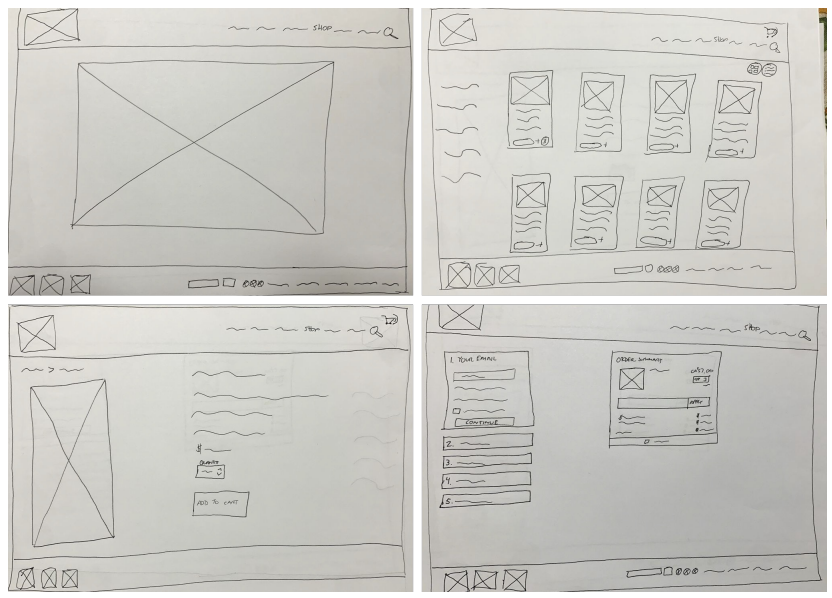 SHOP
Shop
Shop
$
QUANTITY
ADD TO CART
SHOP
1. YOUR EMAIL
CONTINUE
2.
3.
4.
5.
ORDER SUMMARY
APPLY
$ $
$ $
$